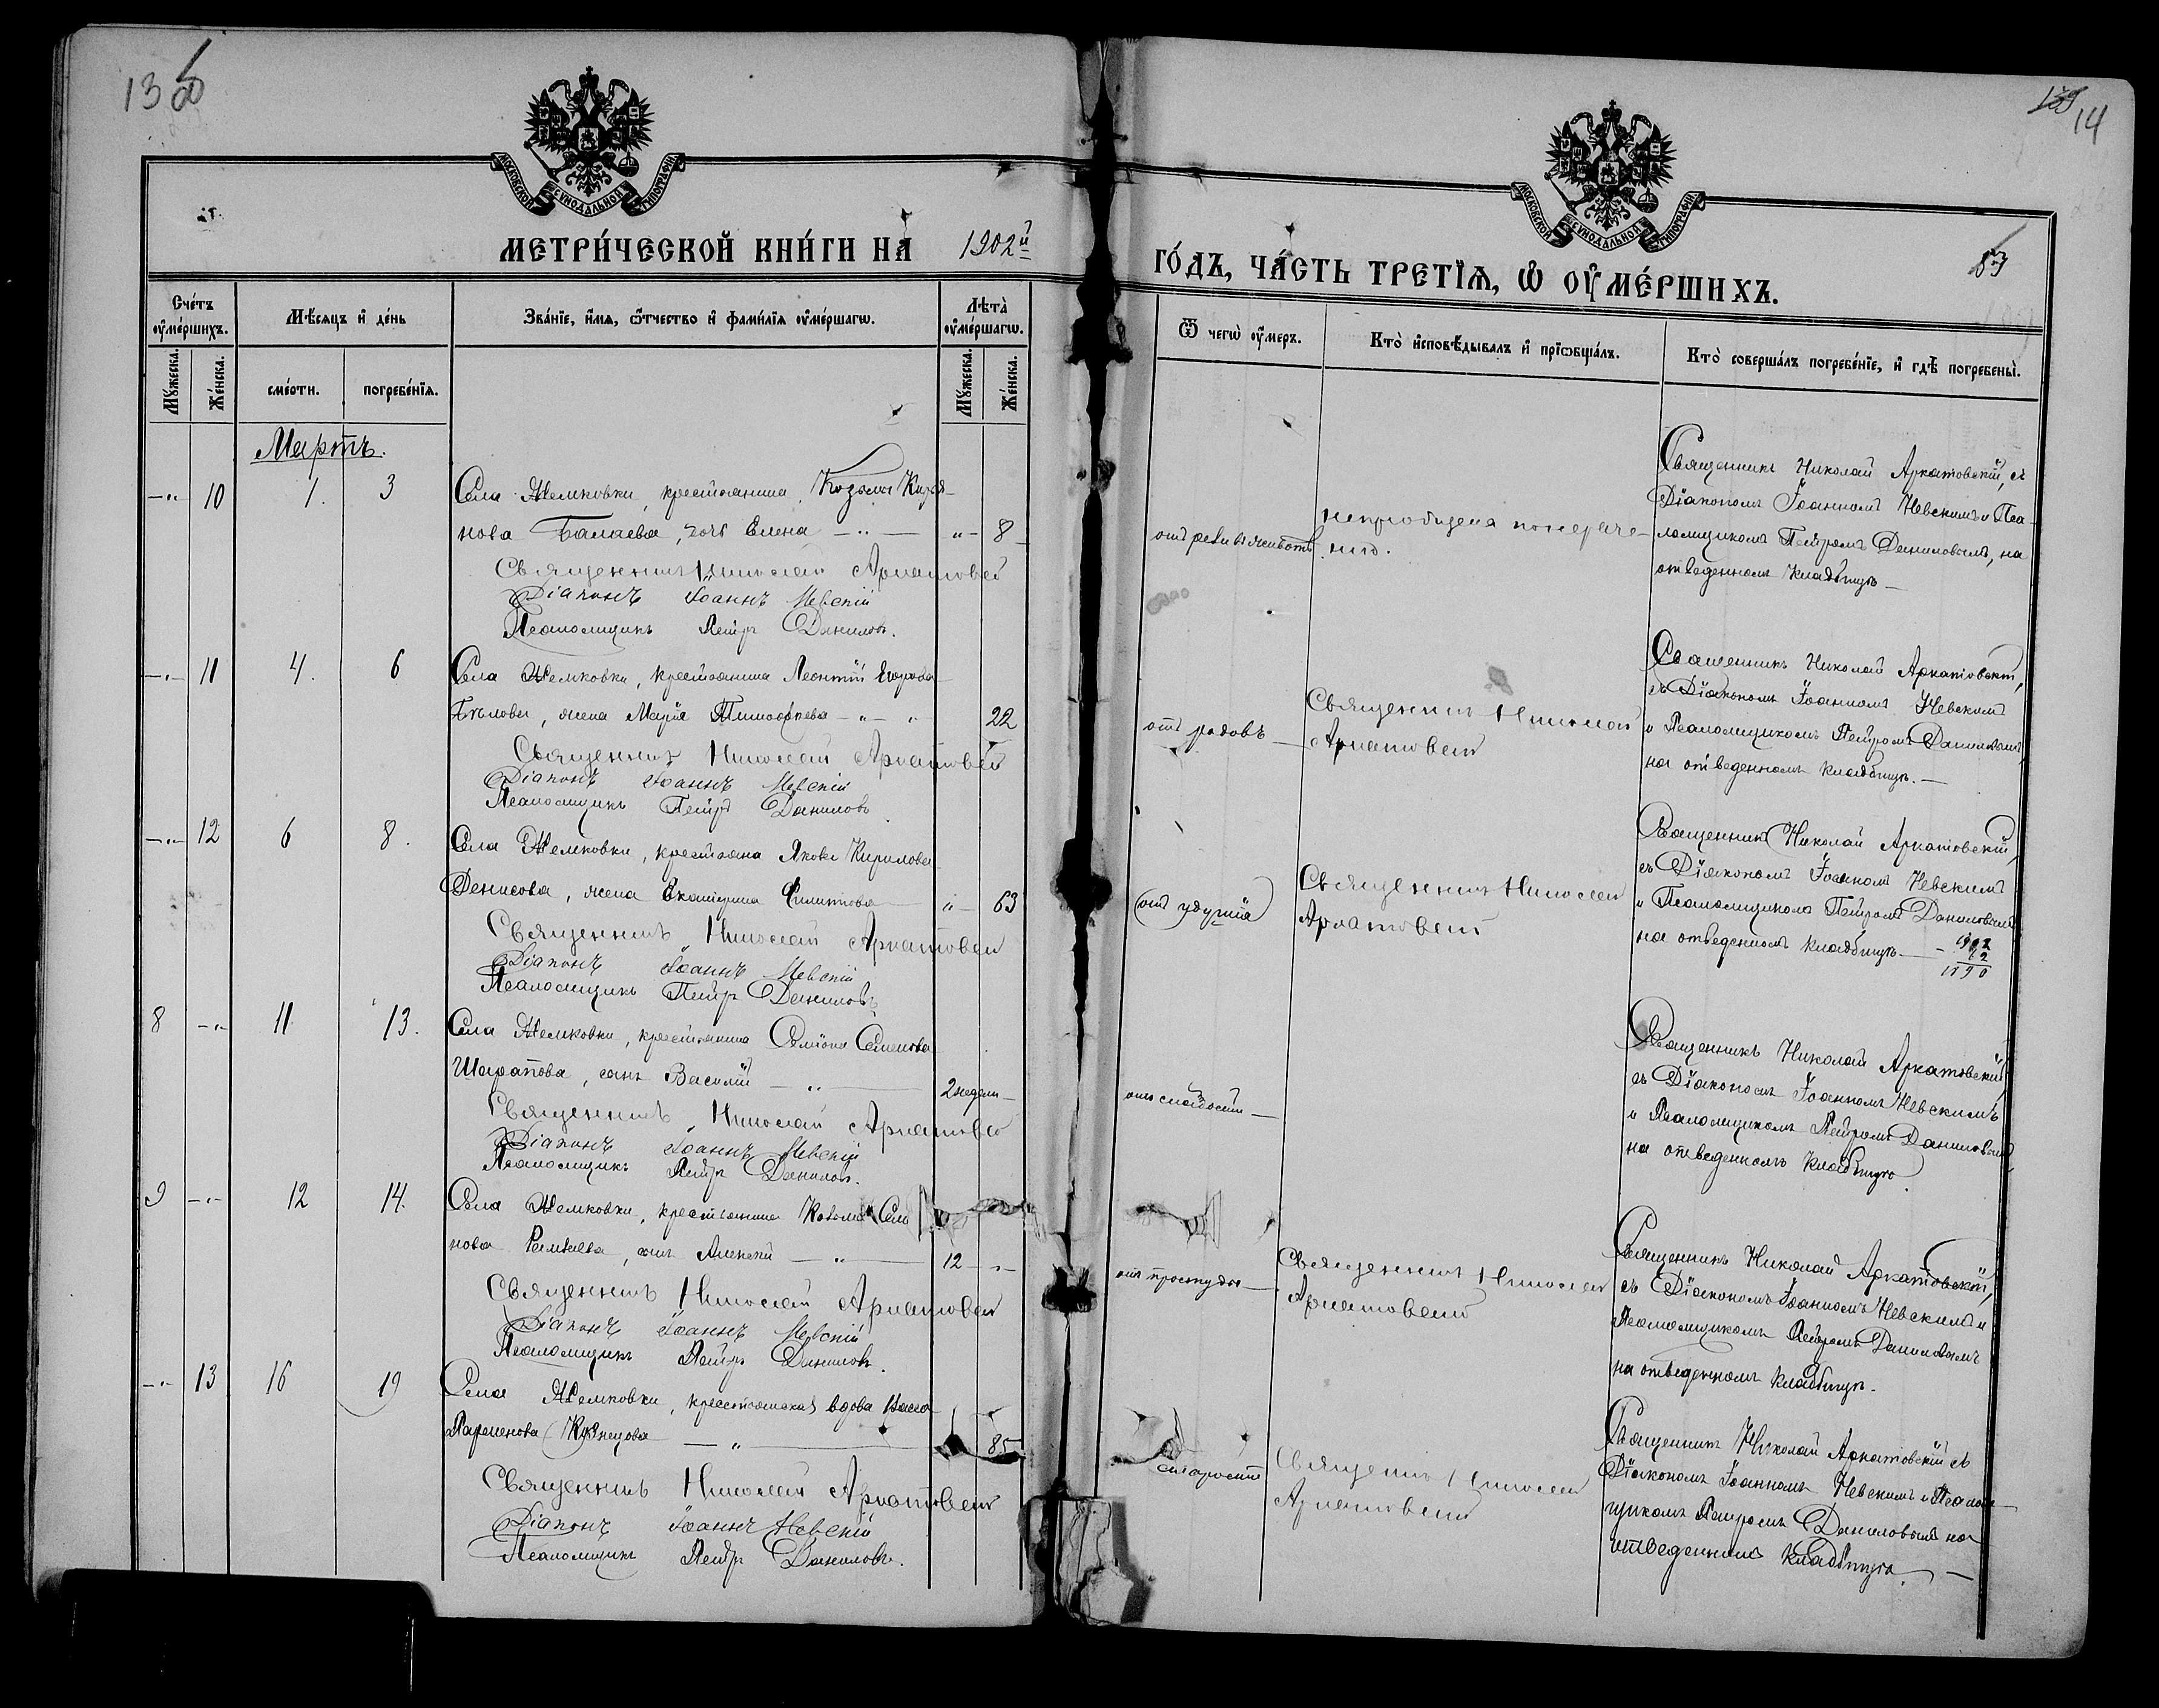 13
14
МОСКОВСКОЙ СѴНОДАЛЬНОЙ ТИПОГРАФІИ
МОСКОВСКОЙ СѴНОДАЛЬНОЙ ТИПОГРАФІИ
МЕТРИ́ЧЕСКОЙ КНИ́ГИ НА 1902й
ГО́ДЪ, ЧА́СТЬ ТРЕТІѦ, Ѡ ОУМЕ́РШИХЪ.
Сче́тъ оумершихъ.
Мѣсяцъ и де́нь
Зва́нїе, и́мя, ѿтчество и фами́лїя оумершагѡ.
Лѣта̀ оумершагѡ.
Ѿ чегѡ̀ оумеръ.
Кто̀ исповѣдывалъ и прїѡбщалъ.
Кто̀ соверша́лъ погребе́нїе, и гдѣ погребены̀.
Мꙋжеска.
Же́нска.
сме́рти.
погребе́нїѧ.
Мꙋжеска.
Же́нска.
Мартъ.
-"- 10 1. 3 Села Жемковки, крестьянина Козьмы
нова Балаева, дочь Елена -"- "- 8
Священникъ Николай Аркатовскій
Діаконъ Іоаннъ Невскій
Псаломщикъ Петръ Даниловъ.
неприобщена
Священникъ Николай Аркатовскій, съ
Діакономъ Іоанномъ Невскимъ и Пса-
ломщикомъ Петромъ Даниловымъ, на
отведенномъ кладбищѣ
-"- 11 4. 6 Села Жемковки, крестьянина Леонтія Егорова
Бѣлова, жена Марія Тимофеева -"- " 22
Священникъ Николай Аркатовскій
Діаконъ Іоаннъ Невскій
Псаломщикъ Петръ Даниловъ
отъ родовъ
Священникъ Николай
Аркатовскій
Священникъ Николай Аркатовскій,
съ Діакономъ Іоанномъ Невскимъ
и Псаломщикомъ Петромъ Даниловымъ,
на отведенномъ кладбищѣ.
-"- 12 6 8. Села Жемковки, крестьянина Якова Кирилова
Денисова, жена Екатерина Филипова "- 63
Священникъ Николай Аркатовскій
Діаконъ Іоаннъ Невскій
Псаломщикъ Петръ Даниловъ
отъ удушія
Священникъ Николай
Аркатовскій
Священникъ Николай Аркатовскій,
съ Діакономъ Іоанномъ Невскимъ
и Псаломщикомъ Петромъ Даниловымъ
на отведенномъ кладбищѣ
1902
12
1890
8 -"- 11 13. Села Жемковки, крестьянина Семіона Семенова
Шарапова, сынъ Василій -"- 2 недели
Священникъ Николай Аркатовскій
Діаконъ Іоаннъ Невскій
Псаломщикъ Петръ Даниловъ.
отъ слабости
Священникъ Николай Аркатовскій,
съ Діакономъ Іоанномъ Невскимъ
и Псаломщикомъ Петромъ Даниловымъ,
на отведенномъ кладбищѣ.
9 -"- 12 14. Села Жемковки, крестьянина
нова сынъ Алексѣй -"- 12 -"-
Священникъ Николай Аркатовскій
Діаконъ Іоаннъ Невскій
Псаломщикъ Петръ Даниловъ.
отъ простуды
Священникъ Николай
Аркатовскій
Священникъ Николай Аркатовскій,
съ Діакономъ Іоанномъ Невскимъ и
Псаломщикомъ Петромъ Даниловымъ
на отведенномъ кладбищѣ.
-"- 13 16 19 Села Жемковки, крестьянская вдова Васса
Парменова Кузнецова -"- 85
Священникъ Николай Аркатовскій
Діаконъ Іоаннъ Невскій
Псаломщикъ Петръ Даниловъ.
старости
Священникъ Николай
Аркатовскій
Священникъ Николай Аркатовскій съ
Діакономъ Іоанномъ Невскимъ и Псалом-
щикомъ Петромъ Даниловымъ на
отведенномъ кладбищѣ.